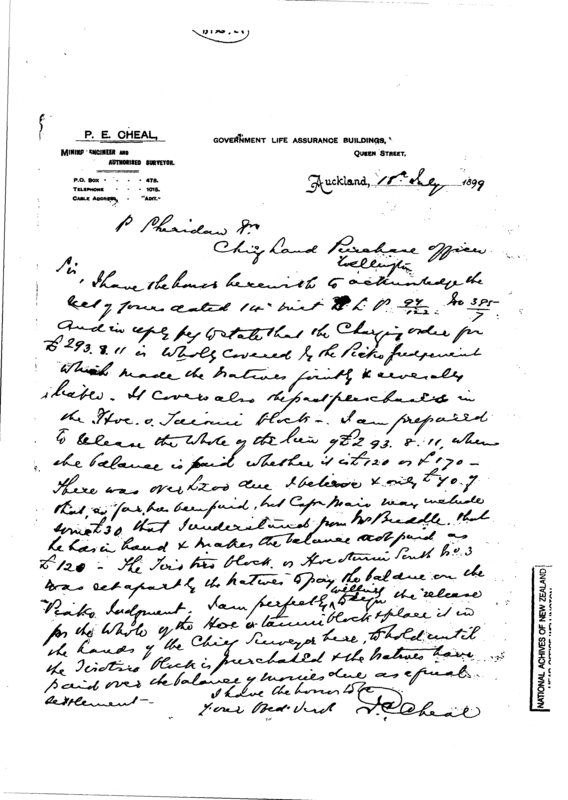 P. E. CHEAL,
MINING ENGINEER AND
AUTHORISED SURVEYOR.
P.O. BOX . . . 475.
TELEPHONE . . . 1015.
CABLE ADDRESS, . "ADIT."
GOVERNMENT LIFE ASSURANCE BUILDINGS,
QUEEN STREET.
Auckland, 18th July 1899
P Sheridan Esr
Chief Land Purchase Officer
Wellington
Sir,
I have the honor herewith to acknowledge the
rect of yours dated 14th inst L P. No 385/7
And in reply beg to state that the Charging order for
£293.8.11 is wholly covered by the Piako Judgement
which made the Natives jointly & severally
liable. It covers also the past purchased in
the Hoe. o. Tainui block -. I am prepared
to release the whole of the lien of £293.8.11, when
the balance is paid whether it is £120 or £170 -
There was over £200 due I believe & only £40 of
that, so far, has been paid, but Capt Mair may include
some £30 that I understand from Mr Buddle that
he has in hand & makes the balance not paid as
£120 - The block or Hoe o Tainui South No. 3
was set apart by the Natives to pay the bal due on the
Piako Judgment. I am perfectly willing to sign the release
for the whole of the Hoe o tainui block & place it in
the hands of the Chief Surveyor here, to hold until
the block is purchased & the Natives have
paid over the balance of monies due as a final
settlement -
I have the honor to be
Your Obed Servt P E Cheal
NATIONAL ACHIVES OF NEW ZEALAND
HEAD OFFICE WELLINGTON